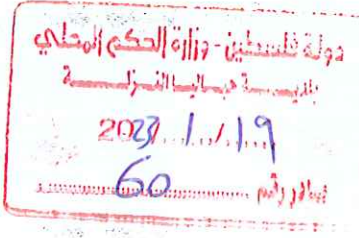 دولة فلسطين - وزارة الحكم المحلي
بلديـــة جباليا النزلـــة
2023/1/19
صادر رقم 60